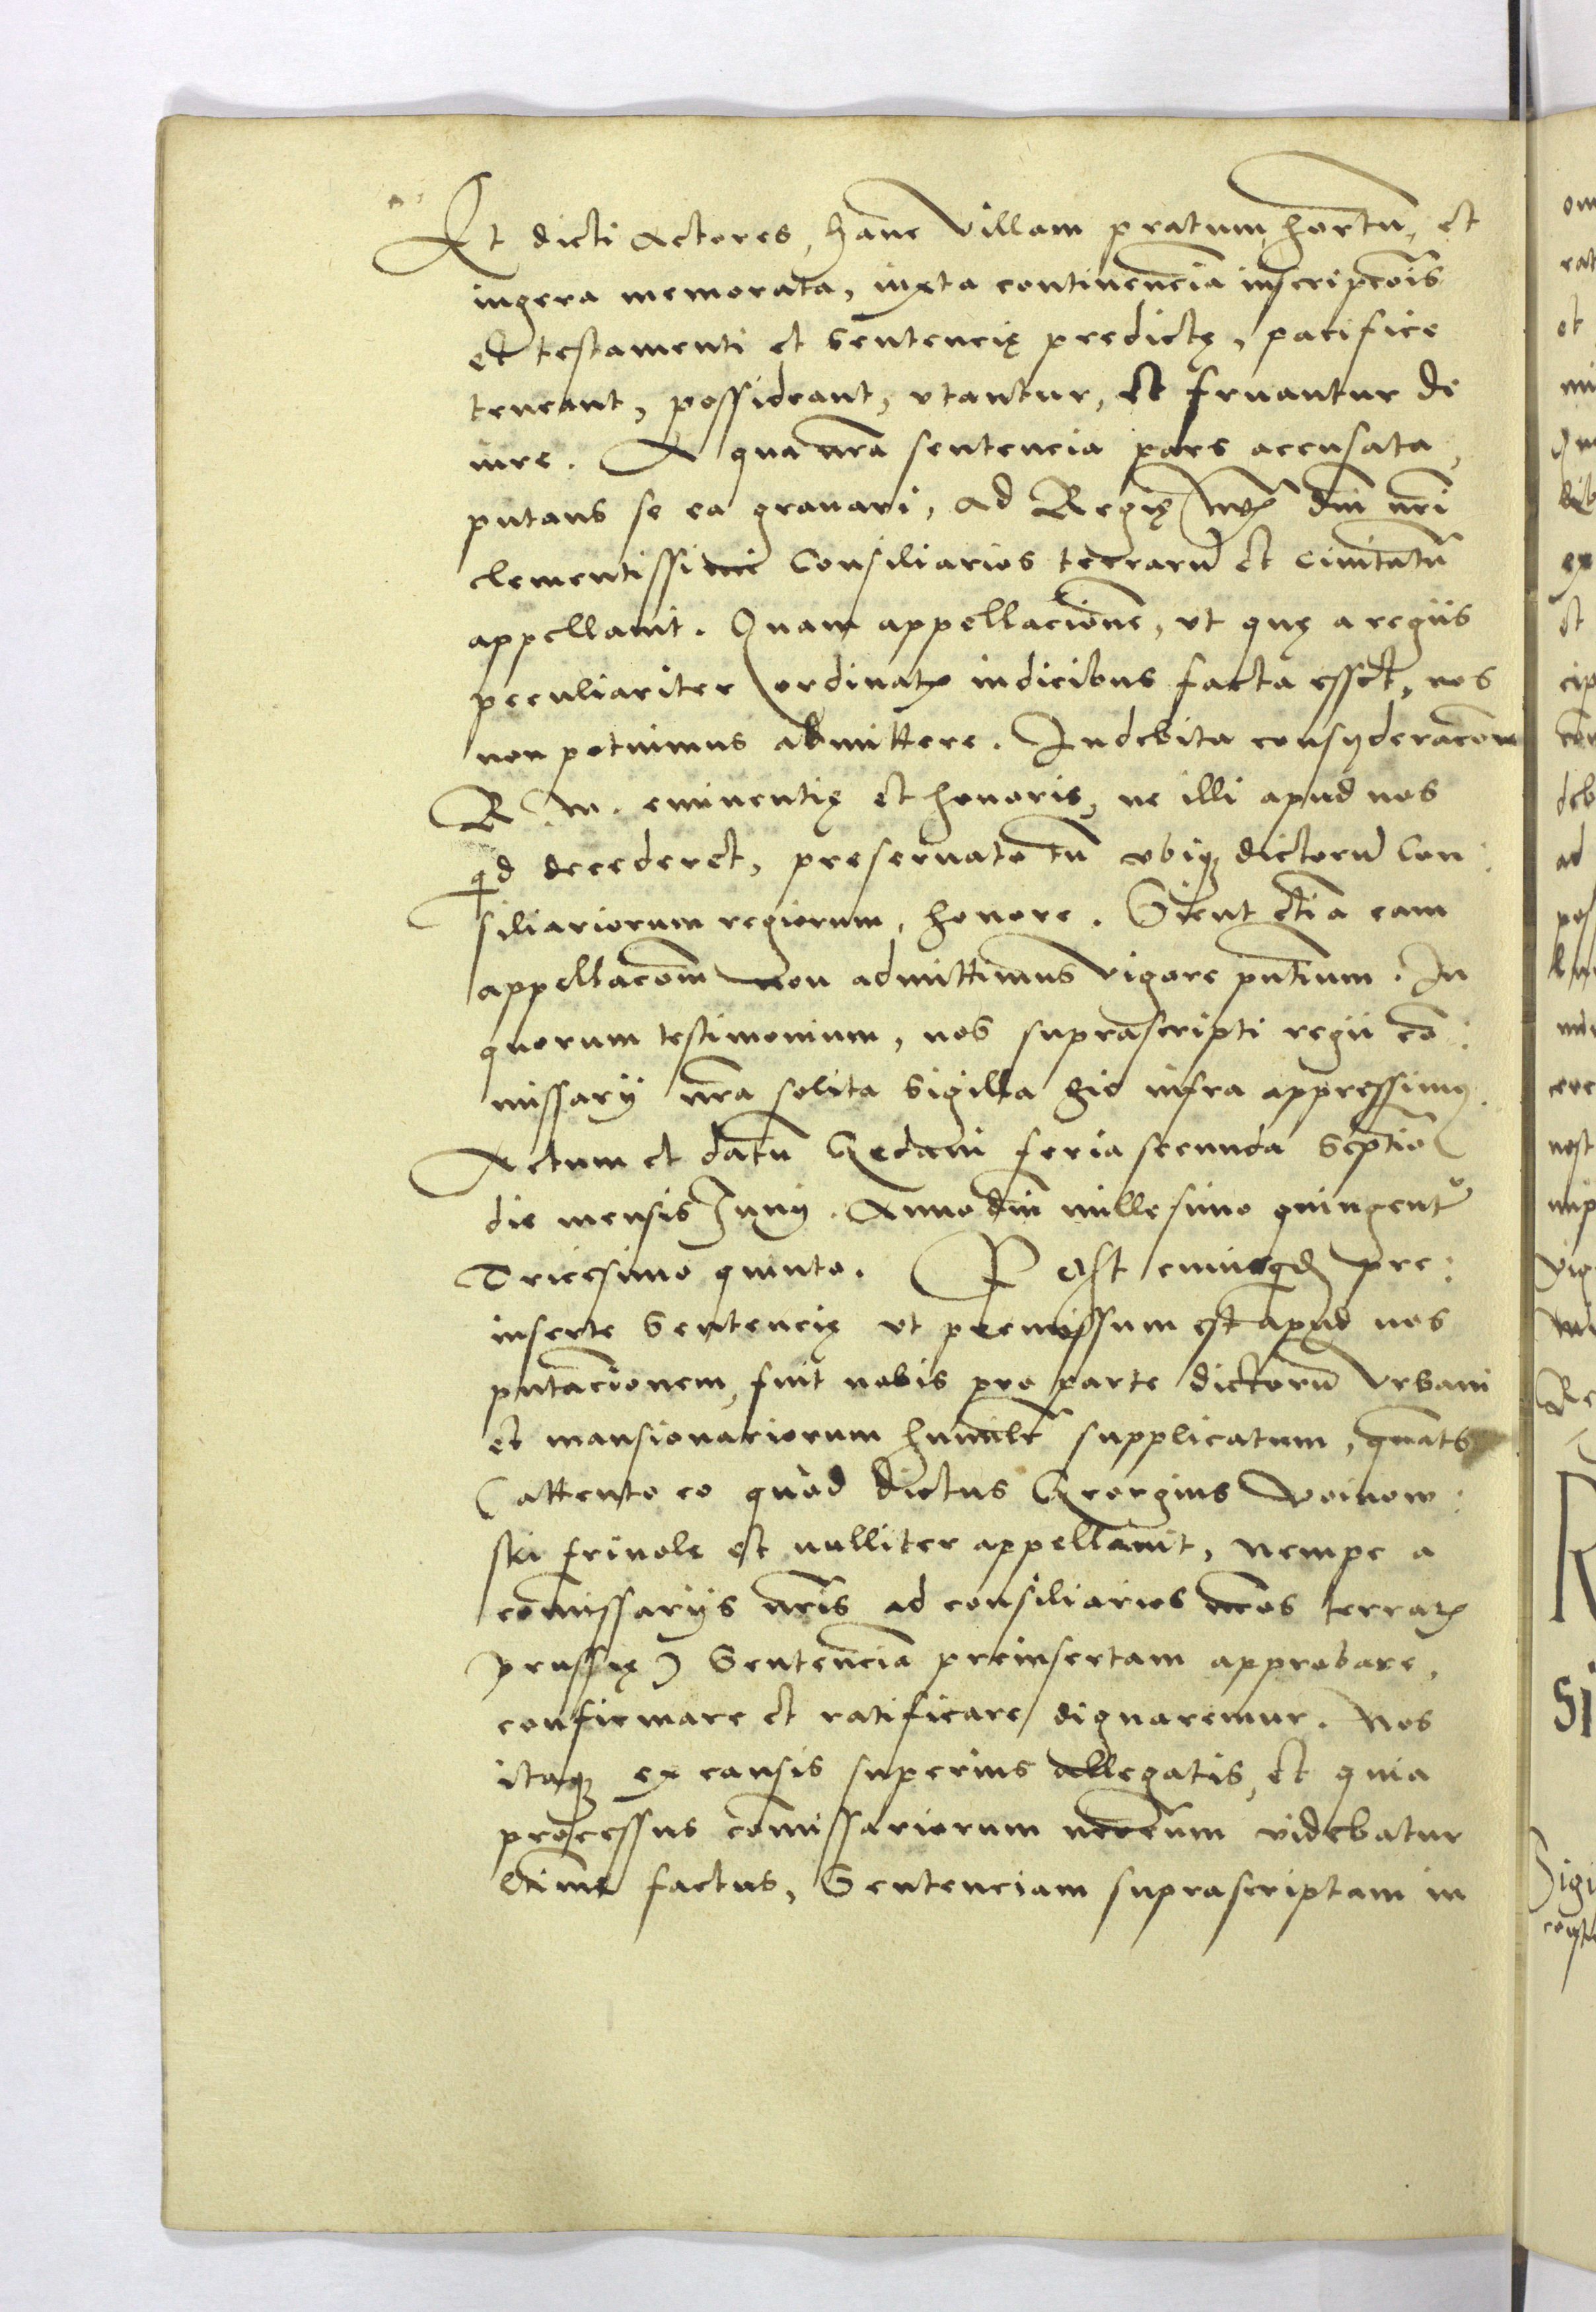 Et dicti Actores, hanc villam pratum, hortũ, et
iugera memorata, iuxta continenciã inscripcõis
et testamenti et Sentencię predictę, pacifice
teneant, possideant, vtantur, et fruantur de
iure. A qua nrã sentencia pars accusata,
putans se ea grauari, ad Regię Mtis dni nri
clementissimi Consiliarios terrarũ et ciuitatũ
appellauit. Quam appellacionẽ, vt quę a regiis
peculiariter ordinatis iudicibus facta esset, nos
non potuimus admittere. In debita consyderacõne
R. M. eminentię et honoris, ne illi apud nos
qd decederet, preseruato tñ vbiqꝫ dictorũ Con:
siliariorum regiorum, honore. Sicut etiã eam
appellacõm non admittimus vigore pñtium. In
quorum testimonium, nos suprascripti regii cõ:
missarij nrã solita Sigilla hic infra appressimꝰ.
Actum et datũ Gedani feria secunda Septiõ
die mensis Junij. Anno dni millesimo quingentᵒ
Tricesimo quinto. Post cuiusqd pre:
inserte Sentencię vt premissum est apud nos
pñtacionem, fuit nobis pro parte dictorũ vrbani
et mansionariorum humilr supplicatum, quãts
(attento eo quod dictus Georgius Woinow:
ski friuole et nulliter appellauit, nempe a
cõmissarijs nris ad consiliarios nros terraꝝ
prussię) Sentenciã preinsertam approbare,
confirmare et ratificare dignaremur. Nos
itaqꝫ ex causis superius allegatis, et quia
processus cõmissariorum nrorum videbatur
factus, Sentenciam suprascriptam in